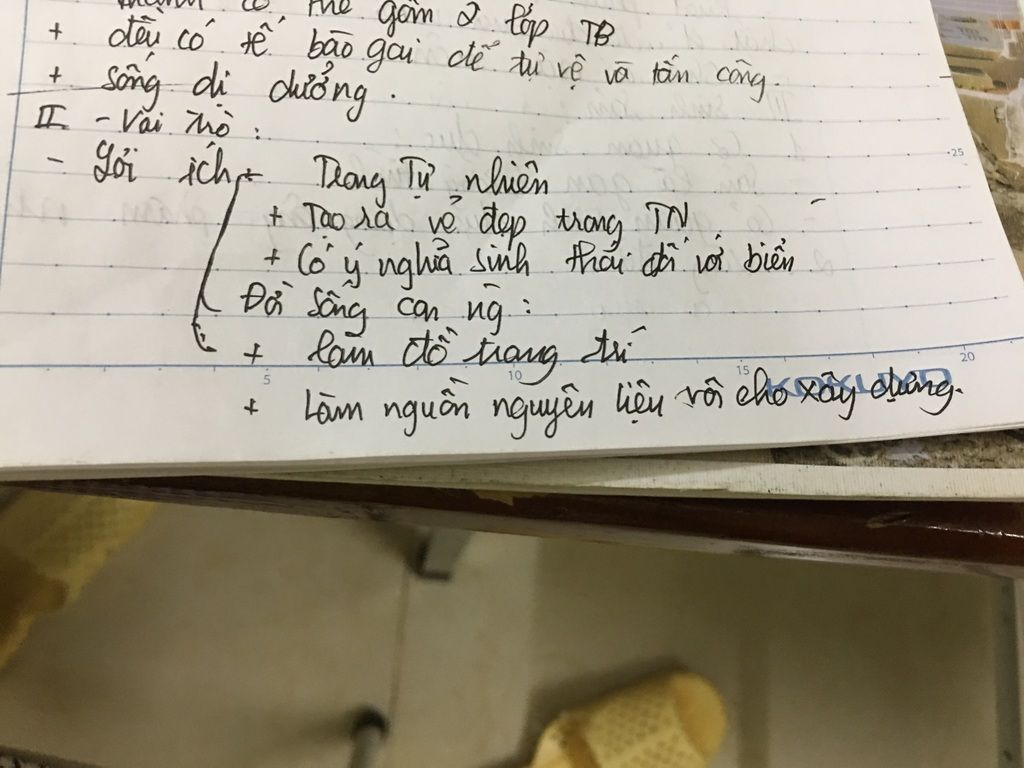 thành cơ thể gồm 2 lớp TB
+ đều có tế bào gai để tự vệ và tấn công.
+ sống dị dưỡng.
II - Vai trò:
- Lợi ích - Trong Tự nhiên
+ Tạo ra vẻ đẹp trong TN
+ Có ý nghĩa sinh thái đối với biển
Đời sống con ng:
+ làm đồ trang trí
+ Làm nguồn nguyên liệu vôi cho xây dựng.
25
5 10 15 20
KOKUYO